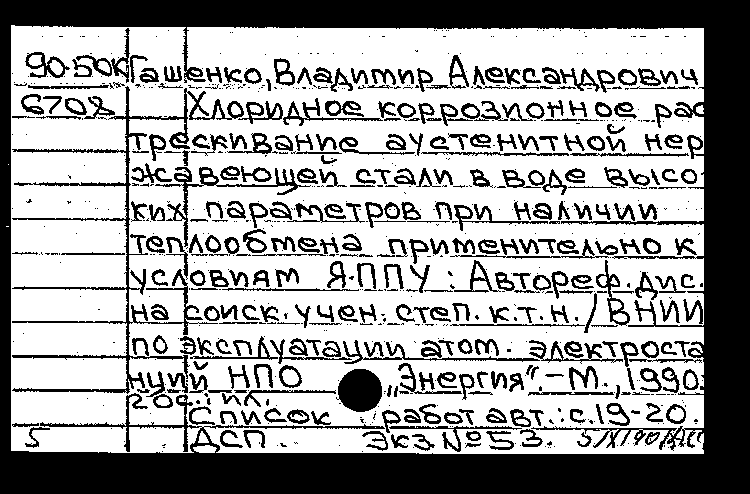 90-50К Гашенко, Владимир Александрович
6708 Хлоридное коррозионное рас
трескивание аустенитной нер
жавеющей стали в воде высо-
ких параметров при наличии
теплообмена применительно к
условиям Я-ППУ : Автореф. дис.
на соиск. учен. степ. к.т.н. / ВНИИ
по эксплуатации атом. электроста
нций НПО „Энергия“. – М., 1990.
20с.: ил.
Список работ авт.: с.19-20.
5 ДСП. Экз. №53. 5/X/90